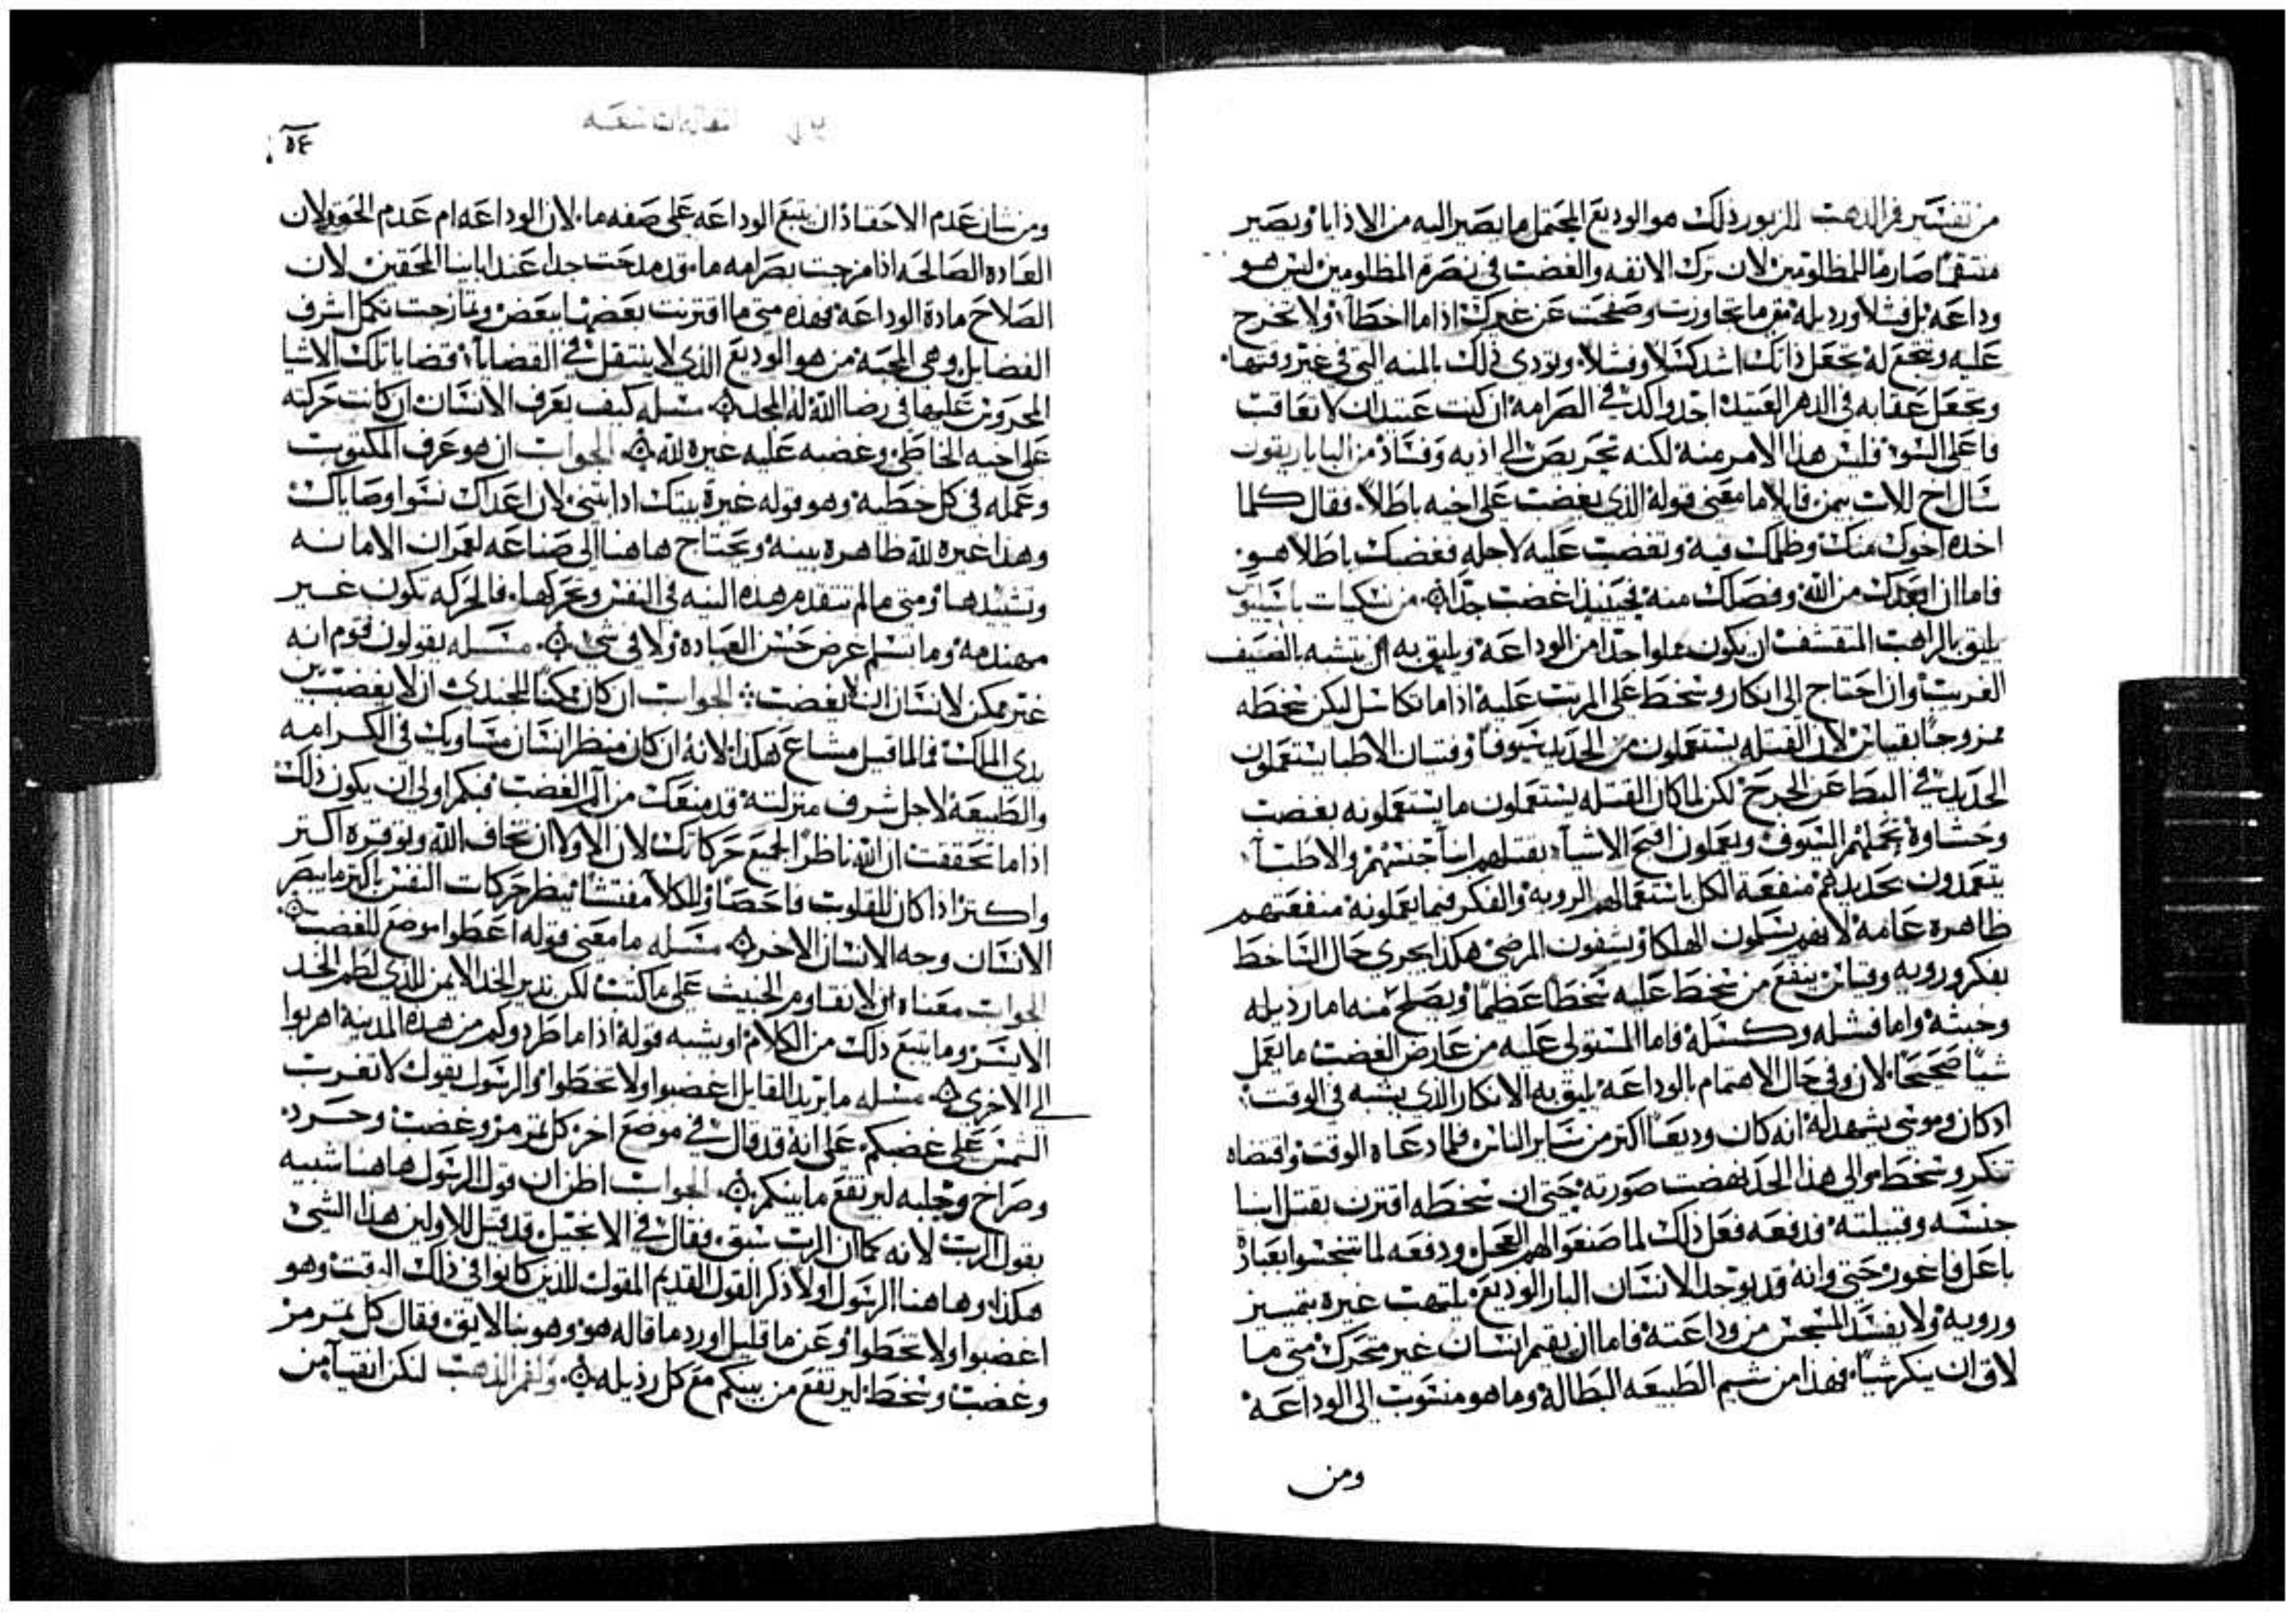 من تفسير فم الذهب للزبور ذلك هو الوديع المحتمل ما يصير اليه من الاذايا ويصير
منتقمًا صارمًا للمظلومين لان ترك الانفه والغضب في نصرة المظلومين ليس هو
وداعه بل فشلا ورديله متى ما تجاوزت وصفحت عن غيرك اذا ما اخطا ولا تخرج
عليه وتجعل ذاتك اشد كسلا وفشلا وتودي ذلك بالمنه التي في غير وقتها
وتجعل عقابه في الدهر العتيد احد واكد في الصرامه ان كنت عتيد ان لا تعاقب
فاعلي السو فليس هذا الامر منه لكنه تحريص الى اذيه وفساد من البابا ريقون
سال اخ للاب بيمن قايلا ما معنى قوله الذي يغضب على اخيه باطلا فقال كلما
اخده اخوك منك وظلمك فيه وتغضب عليه لاجله فغضبك باطلا هو
فاما ان ابعدك من الله وفصلك منه فحينيذ اغضب جدا من نسكيات باسيليوس
يليق بالراهب المتقشف ان يكون مملوا جدا من الوداعه ويليق به ان يتشبه بالضيف
الغريب وان احتاج الى انكار وسخط على المرتب عليه اذا ما تكاسل ليكن سخطه
ممزوجًا بقياس لان القتله يستعملون من الحديد سيوفًا وفتيان الاطبا يستعملون
الحديد في البط عن الجرح لكن لما كان القتله يستعملون ما يستعملونه بغضب
وحشاوة تحملهم السيوف ويعملون اقبح الاشيا بقتلهم ابنا جنسهم والاطبا
يتعمدون بحديدهم منفعة الكل باستعمالهم الرويه والفكر فيما يعملونه منفعتهم
ظاهره عامه لانهم يسلون الهلكا ويشفون المرضى هكذا يجرى حال الساخط
بفكر ورويه وقياس ينفع من سخط عليه سخطًا عظيمًا ويصلح منه اما رذيله
وخبثه واما فشله وكسله فاما المستولى عليه من عارض الغضب ما يعمل
شيًا صحيحًا لان وفي حال الاهتمام بالوداعه يليق به الانكار الذي يشبه في الوقت
اد كان وموسى يشهد له انه كان وديعًا اكتر من ساير الناس فلما دعاه الوقت واقتضاه
تنكر وسخط والى هذا الحد نهضت صورته حتى ان سخطه اقترن بقتل ابنا
جنسه وقبيلته فدفعه فعل ذلك لما صنعوا لهم العجل ودفعه لما تنجسوا بعباد
باعل فاغور حتى وانه قد يوجد الانسان البار الوديع يلتهب غيره بتمييز
ورويه ولا يفسد السجس من وداعته فاما ان يقيم انسان غير متحرك متى ما
لاق ان ينكر شيًا فهذا من شيم الطبيعه البطاله وما هو منسوب الى الوداعه
ومن
٥٤
ومن شان عدم الاحقاد ان يتبع الوداعه على صفه ما لان الوداعه ام عدم الحقد لان
العاده الصالحه اذا مزجت بصرامه ما قد مدحت جدا عند ابابينا المحقين لان
الصلاح مادة الوداعه فهذه متى ما اقترنت بعضها ببعض وتمازجت تكمل اشرف
الفضايل وهي المحبه من هو الوديع الذي لا ينتقل في القضايا قضايا تلك الاشيا
المحروص عليها في رضا الله له المجد مسله كيف يعرف الانسان ان كانت حركته
على اخيه الخاطى وغضبه عليه غيره لله الجواب ان هو عرف المكتوب
وعمله في كل خطيه وهو قوله غيرة بيتك اذابتني لان اعداك نسوا وصاياك
وهذا غيره لله ظاهره بينه ويحتاج هاهنا الى صناعه لعمران الامانه
وتشيدها ومتى ما لم تتقدم هذه النيه في النفس وتحركها فالحركه تكون غير
مهندمه وما تسلم عرض حسن العباده ولا في شي مسله يقولون قوم انه
غير ممكن لانسان ان لا يغضب الجواب ان كان ممكنًا للجندى ان لا يغضب بين
يدى الملك فما لما قيل مشاع هكذا لانه ان كان منظر انسان مساويك في الكرامه
والطبيعه لاجل شرف منزلته قد منعك من الم الغضب فبكم اولى ان يكون ذلك
اذا ما تحققت ان الله ناظرًا لجميع حركاتك لان الاولا ان تخاف الله وتوقره اكتر
واكتر اذا كان للقلوب فاحصًا وللكلا مفتشًا ينظر حركات النفس باكتر ما يبصر
الانسان وجه الانسان الاخر مسله ما معنى قوله اعطوا موضع للغضب
الجواب معناه ان لا تقاوم الخبيث على ما كتب لكن ندير الخد الايمن للذي لطم الخد
الايسر وما يتبع ذلك من الكلام او يشبه قوله اذا ما طردوكم من هذه المدينه اهربوا
الى الاخرى مسله ما يريد القايل اغضبوا ولا تخطوا والرسول يقول لا تغرب
الشمس على غضبكم على انه قد قال في موضع اخر كل تمرمر وغضب وحرد
وصراخ وجلبه ليرتفع ما بينكم الجواب اظن ان قول الرسول هاهنا شبيه
بقول الرب لانه كما ان الرب سبق فقال في الانجيل قد قيل للاولين هذا الشي
هكذا وهاهنا الرسول اولا ذكر القول القديم المقول للذين كانوا في ذلك الوقت وهو
اغضبوا ولا تخطوا وعن ما قليل اورد ما قاله هو وهو بنا لايق فقال كل تمرمر
وغضب وسخط ليرتفع من بينكم مع كل رذيله ولفم الذهب لنكن انقيا من